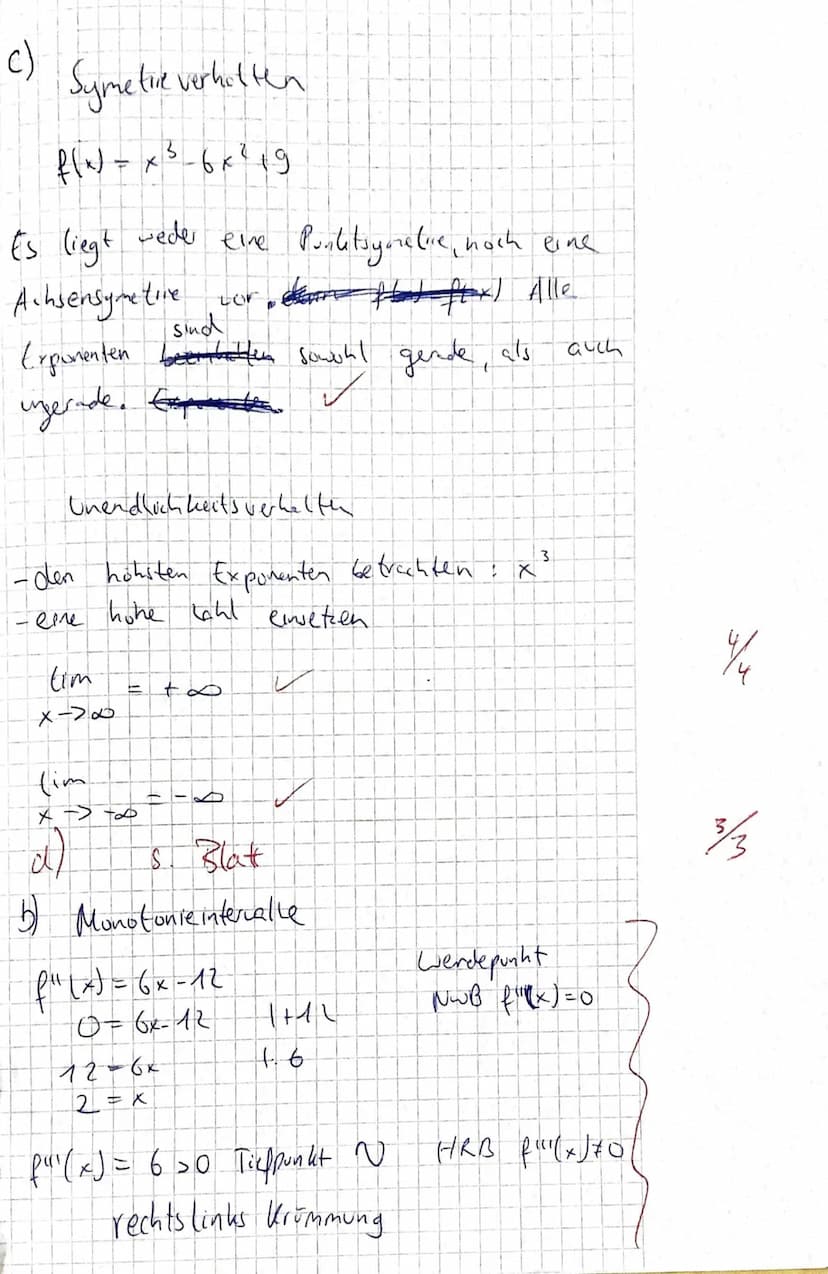 c) Symetrieverhalten
f(x) = x³ - 6x² + 9
Es liegt weder eine Punktsymetrie, noch eine
Achsensymetrie vor. Alle
sind
Exponenten sowohl gerade, als auch
ungerade. ✓
Unendlichkeitsverhalten
- den höhsten Exponenten betrachten : x³
- eine hohe Zahl einsetzen
4/4
lim = + ∞ ✓
x -> ∞
lim = - ∞ ✓
x -> -∞
3/3
d) s. Blatt
b) Monotonieintervalle
Wendepunkt
f''(x) = 6x - 12
NWB f''(x) = 0
0 = 6x - 12 |+12
12 = 6x |: 6
2 = x
f'''(x) = 6 > 0 Tiefpunkt HRB f'''(x) ≠ 0
rechtslinks Krümmung